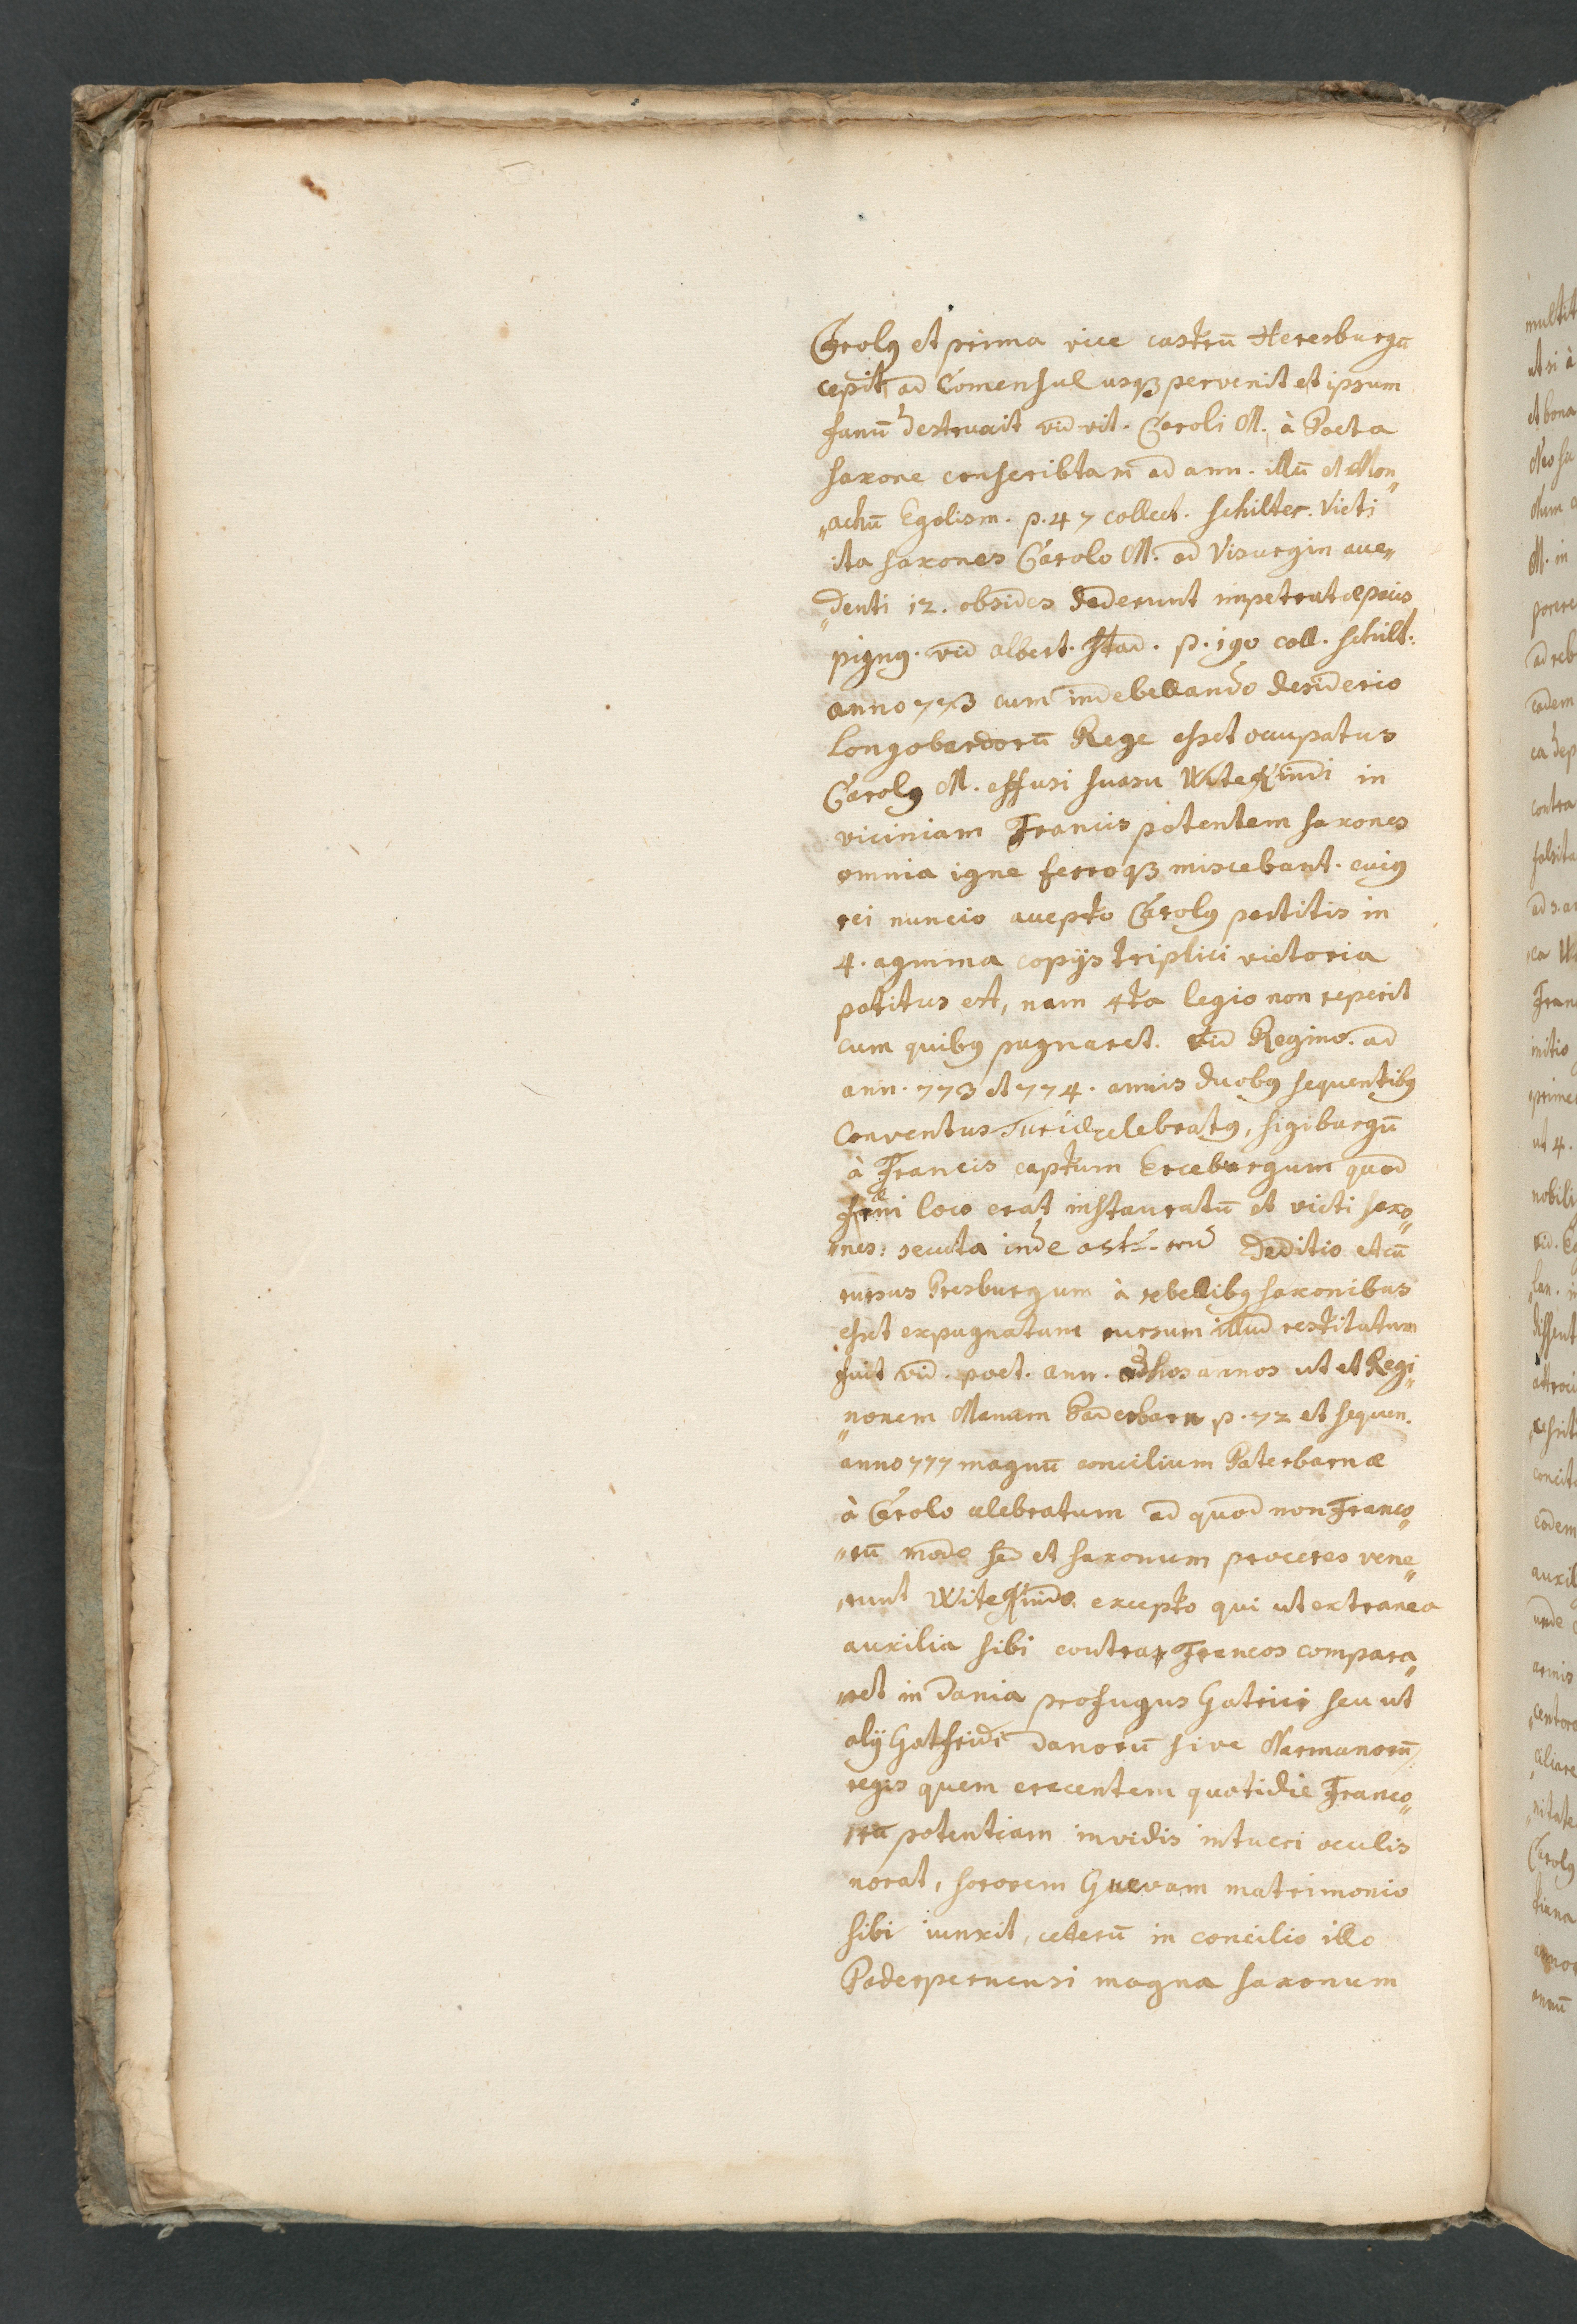 Carolꝰ et prima vice castrū Heresburgū
cepit, ad Eomensul usqꝫ pervenit et ipsum
fanū destruxit vid vit. Caroli M. à Poeta
saxone conscribtam ad ann. illū et Mon„
„achū Egolism. p. 47 collect. Schilter. Victi
ita saxones Carolo M. ad Visurgin acce„
„denti 12. obsides dederunt impetratæ pacis
pignꝰ. vid albert. Stad. p. 190 coll. Schilt:
anno 773 cum in debellando desiderio
Longobardorū Rege esset occupatus
Carolꝰ M. effusi suasu Witekindi in
viciniam Francis potentem saxones
omnia igne ferroqꝫ miscebant. cuiꝰ
rei nuncio accepto Carolꝰ partitis in
4. agmina copijs triplici victoria
potitus est, nam 4ta legio non reperit
cum quibꝰ pugnaret. vid Regino. ad
ann. 773 et 774. annis duobꝰ sequentibꝰ
Conventus Duriæ celebratꝰ, sigiburgū
à Francis captum Ereburgum quod
fani loco erat instauratū et victi saxo„
„nes: secuta inde deditio et cū
rursus Eresburgum à rebellibꝰ saxonibus
esset expugnatum rursum illud restitutum
fuit vid. poet. ann. ad hos annos ut et Regi„
„nonem Monum Paderborn p. 72 et sequen.
anno 777 magnū concilium Paterbornæ
à Carolo celebratum ad quod non Franco„
„rū modo sed et saxonum proceres vene„
„runt Witekindo. excepto qui ut extranea
auxilia sibi contra Francos compara„
„ret in Dania profugus Gotrici seu ut
alij Gotfridi Danorū sive Normanorū
regis quem crescentem quotidie Franco„
„rū potentiam invidis intueri oculis
norat, sororem Guevam matrimonio
sibi iunxit, ceterū in concilio illo
Paderpernensi magna saxonum
multit
ut si à
et bona
M. in
ad reb
eadem
contra
ad s. an
Fran
initio
prime
ut 4.
nobili
eodem
auxil
unde
armis
Carolꝰ